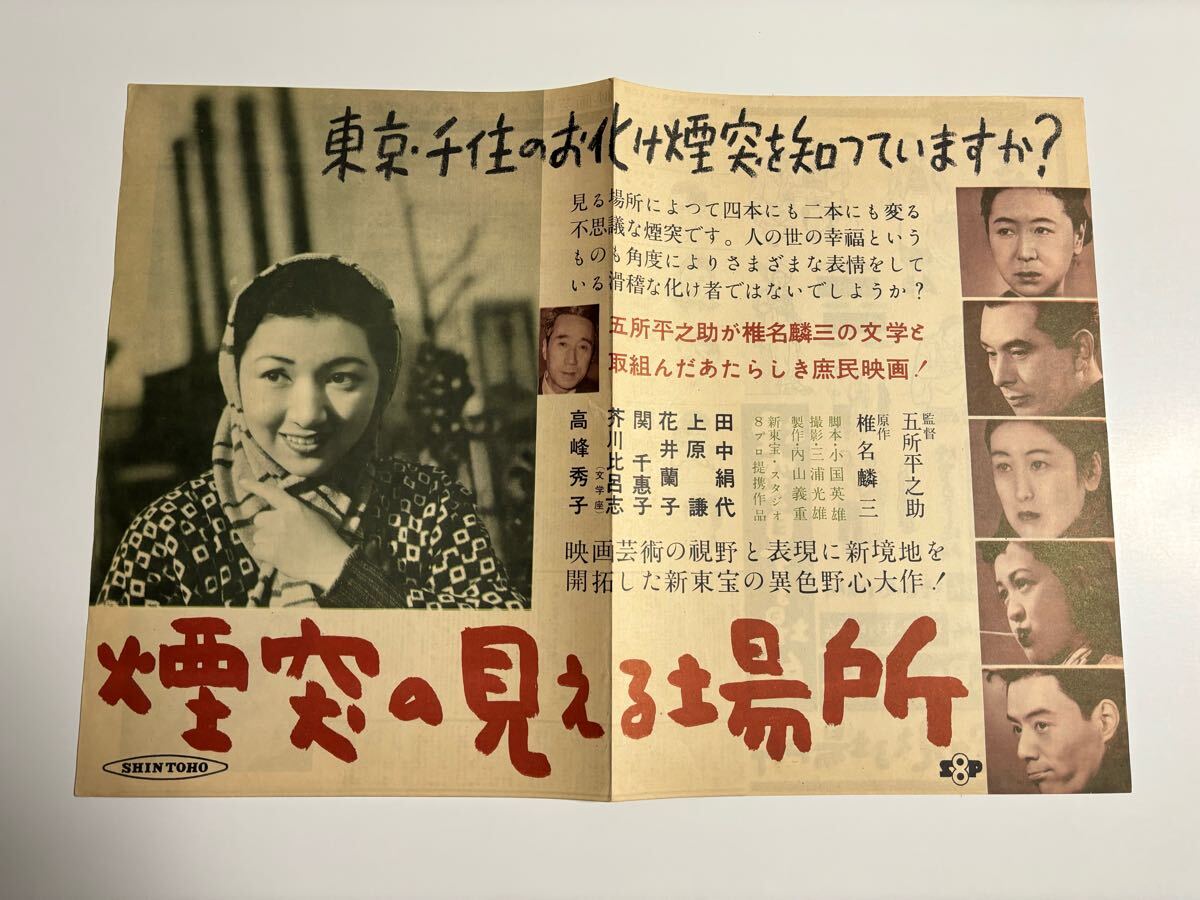 東京・千住のお化け煙突を知つていますか?
見る場所によつて四本にも二本にも変る
不思議な煙突です。人の世の幸福という
ものも角度によりさまざまな表情をして
いる滑稽な化け者ではないでしようか?
五所平之助が椎名麟三の文学と
取組んだあたらしき庶民映画!
監督
五所平之助
原作
椎名麟三
脚本・小国英雄
撮影・三浦光雄
製作・内山義重
新東宝・スタジオ
8プロ提携作品
田中絹代
上原謙
花井蘭子
関千惠子
芥川比呂志
(文学座)
高峰秀子
映画芸術の視野と表現に新境地を
開拓した新東宝の異色野心大作!
煙突の見える場所
SHINTOHO
S8P